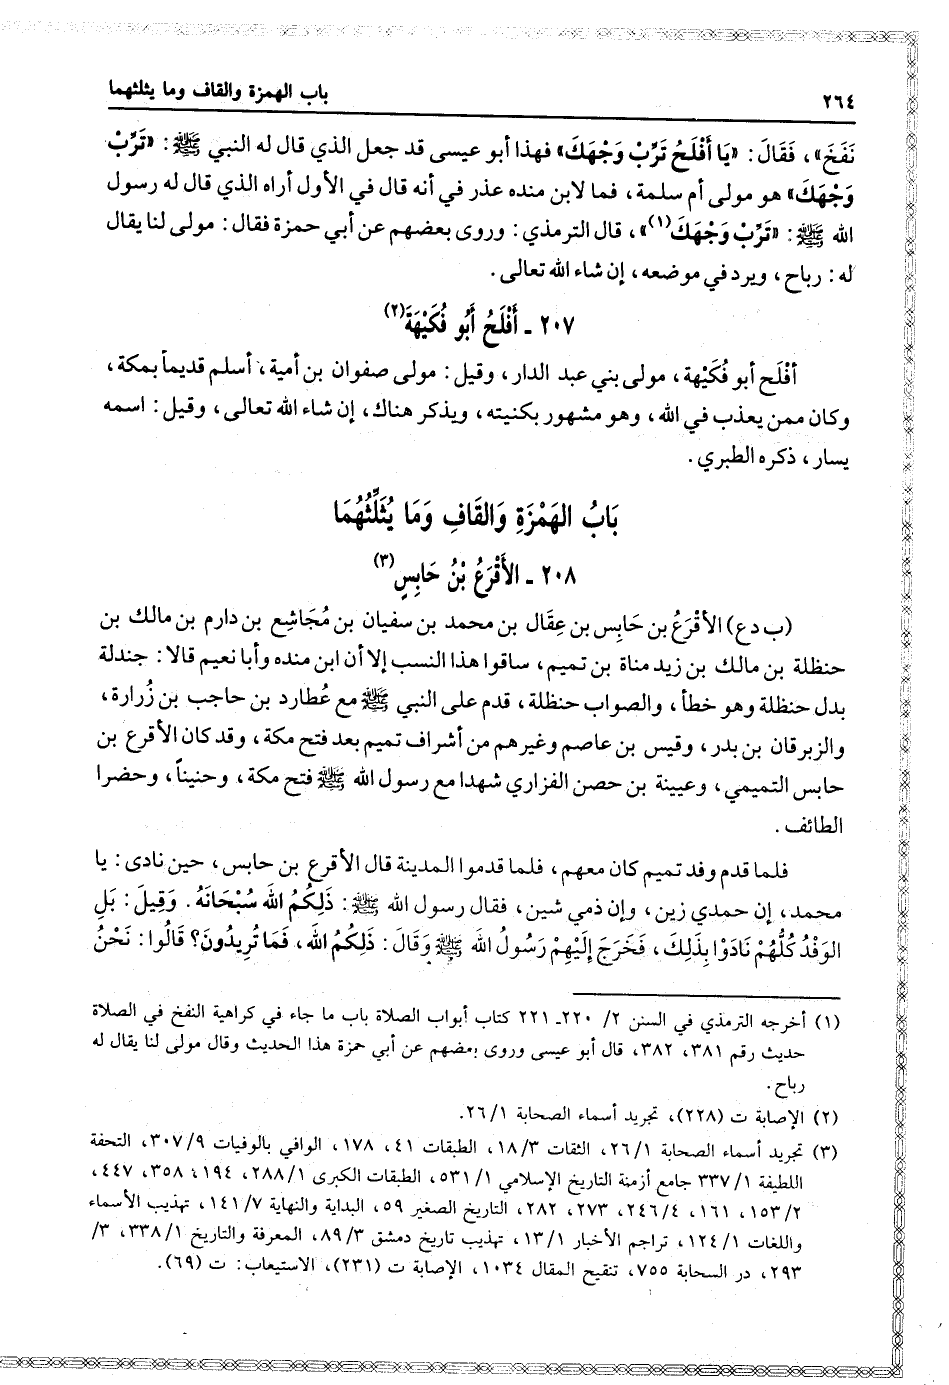 ٢٦٤ باب الهمزة والقاف وما يثلثهما
نَفَخَ»، فَقَالَ: «يَا أَفْلَحُ تَرِّبْ وَجْهَكَ» فهذا أبو عيسى قد جعل الذي قال له النبي ﷺ: «تَرِّبْ
وَجْهَكَ» هو مولى أم سلمة، فما لابن منده عذر في أنه قال في الأول أراه الذي قال له رسول
الله ﷺ: «تَرِّبْ وَجْهَكَ(١)»، قال الترمذي: وروى بعضهم عن أبي حمزة فقال: مولى لنا يقال
له: رباح، ويرد في موضعه، إن شاء الله تعالى.
٢٠٧ ـ أَفْلَحُ أَبُو فُكَيْهَةَ(٢)
أفْلَح أبو فُكَيْهة، مولى بني عبد الدار، وقيل: مولى صفوان بن أمية، أسلم قديماً بمكة،
وكان ممن يعذب في الله، وهو مشهور بكنيته، ويذكر هناك، إن شاء الله تعالى، وقيل: اسمه
يسار، ذكره الطبري.
بَابُ الهَمْزَةِ وَالقَافِ وَمَا يُثَلِّثُهُمَا
٢٠٨ ـ الأَقْرَعُ بْنُ حَابِسٍ(٣)
(ب د ع) الأقْرَعُ بن حَابِس بن عِقَال بن محمد بن سفيان بن مُجَاشِع بن دارم بن مالك بن
حنظلة بن مالك بن زيد مناة بن تميم، ساقوا هذا النسب إلا أن ابن منده وأبا نعيم قالا: جندلة
بدل حنظلة وهو خطأ، والصواب حنظلة، قدم على النبي ﷺ مع عُطارد بن حاجب بن زُرارة،
والزبرقان بن بدر، وقيس بن عاصم وغيرهم من أشراف تميم بعد فتح مكة، وقد كان الأقرع بن
حابس التميمي، وعيينة بن حصن الفزاري شهدا مع رسول الله ﷺ فتح مكة، وحنيناً، وحضرا
الطائف.
فلما قدم وفد تميم كان معهم، فلما قدموا المدينة قال الأقرع بن حابس، حين نادى: يا
محمد، إن حمدي زين، وإن ذمي شين، فقال رسول الله ﷺ: ذَلِكُمُ الله سُبْحَانَهُ. وَقِيلَ: بَلِ
الوَفْدُ كُلُّهُمْ نَادَوْا بِذَلِكَ، فَخَرَجَ إِلَيْهِمْ رَسُولُ الله ﷺ وَقَالَ: ذَلِكُمُ الله، فَمَا تُرِيدُونَ؟ قَالُوا: نَحْنُ
(١) أخرجه الترمذي في السنن ٢/ ٢٢٠ـ ٢٢١ كتاب أبواب الصلاة باب ما جاء في كراهية النفخ في الصلاة
حديث رقم ٣٨١، ٣٨٢، قال أبو عيسى وروى بعضهم عن أبي حمزة هذا الحديث وقال مولى لنا يقال له
رباح.
(٢) الإصابة ت (٢٢٨)، تجريد أسماء الصحابة ١/ ٢٦.
(٣) تجريد أسماء الصحابة ١/ ٢٦، الثقات ٣/ ١٨، الطبقات ٤١، ١٧٨، الوافي بالوفيات ٩/ ٣٠٧، التحفة
اللطيفة ١/ ٣٣٧ جامع أزمنة التاريخ الإسلامي ١/ ٥٣١، الطبقات الكبرى ١/ ٢٨٨، ١٩٤، ٣٥٨، ٤٤٧،
٢/ ١٥٣، ١٦١، ٤/ ٢٤٦، ٢٧٣، ٢٨٢، التاريخ الصغير ٥٩، البداية والنهاية ٧/ ١٤١، تهذيب الأسماء
واللغات ١/ ١٢٤، تراجم الأخبار ١/ ١٣، تهذيب تاريخ دمشق ٣/ ٨٩، المعرفة والتاريخ ١/ ٣٣٨، ٣/
٢٩٣، در السحابة ٧٥٥، تنقيح المقال ١٠٣٤، الإصابة ت (٢٣١)، الاستيعاب: ت (٦٩).